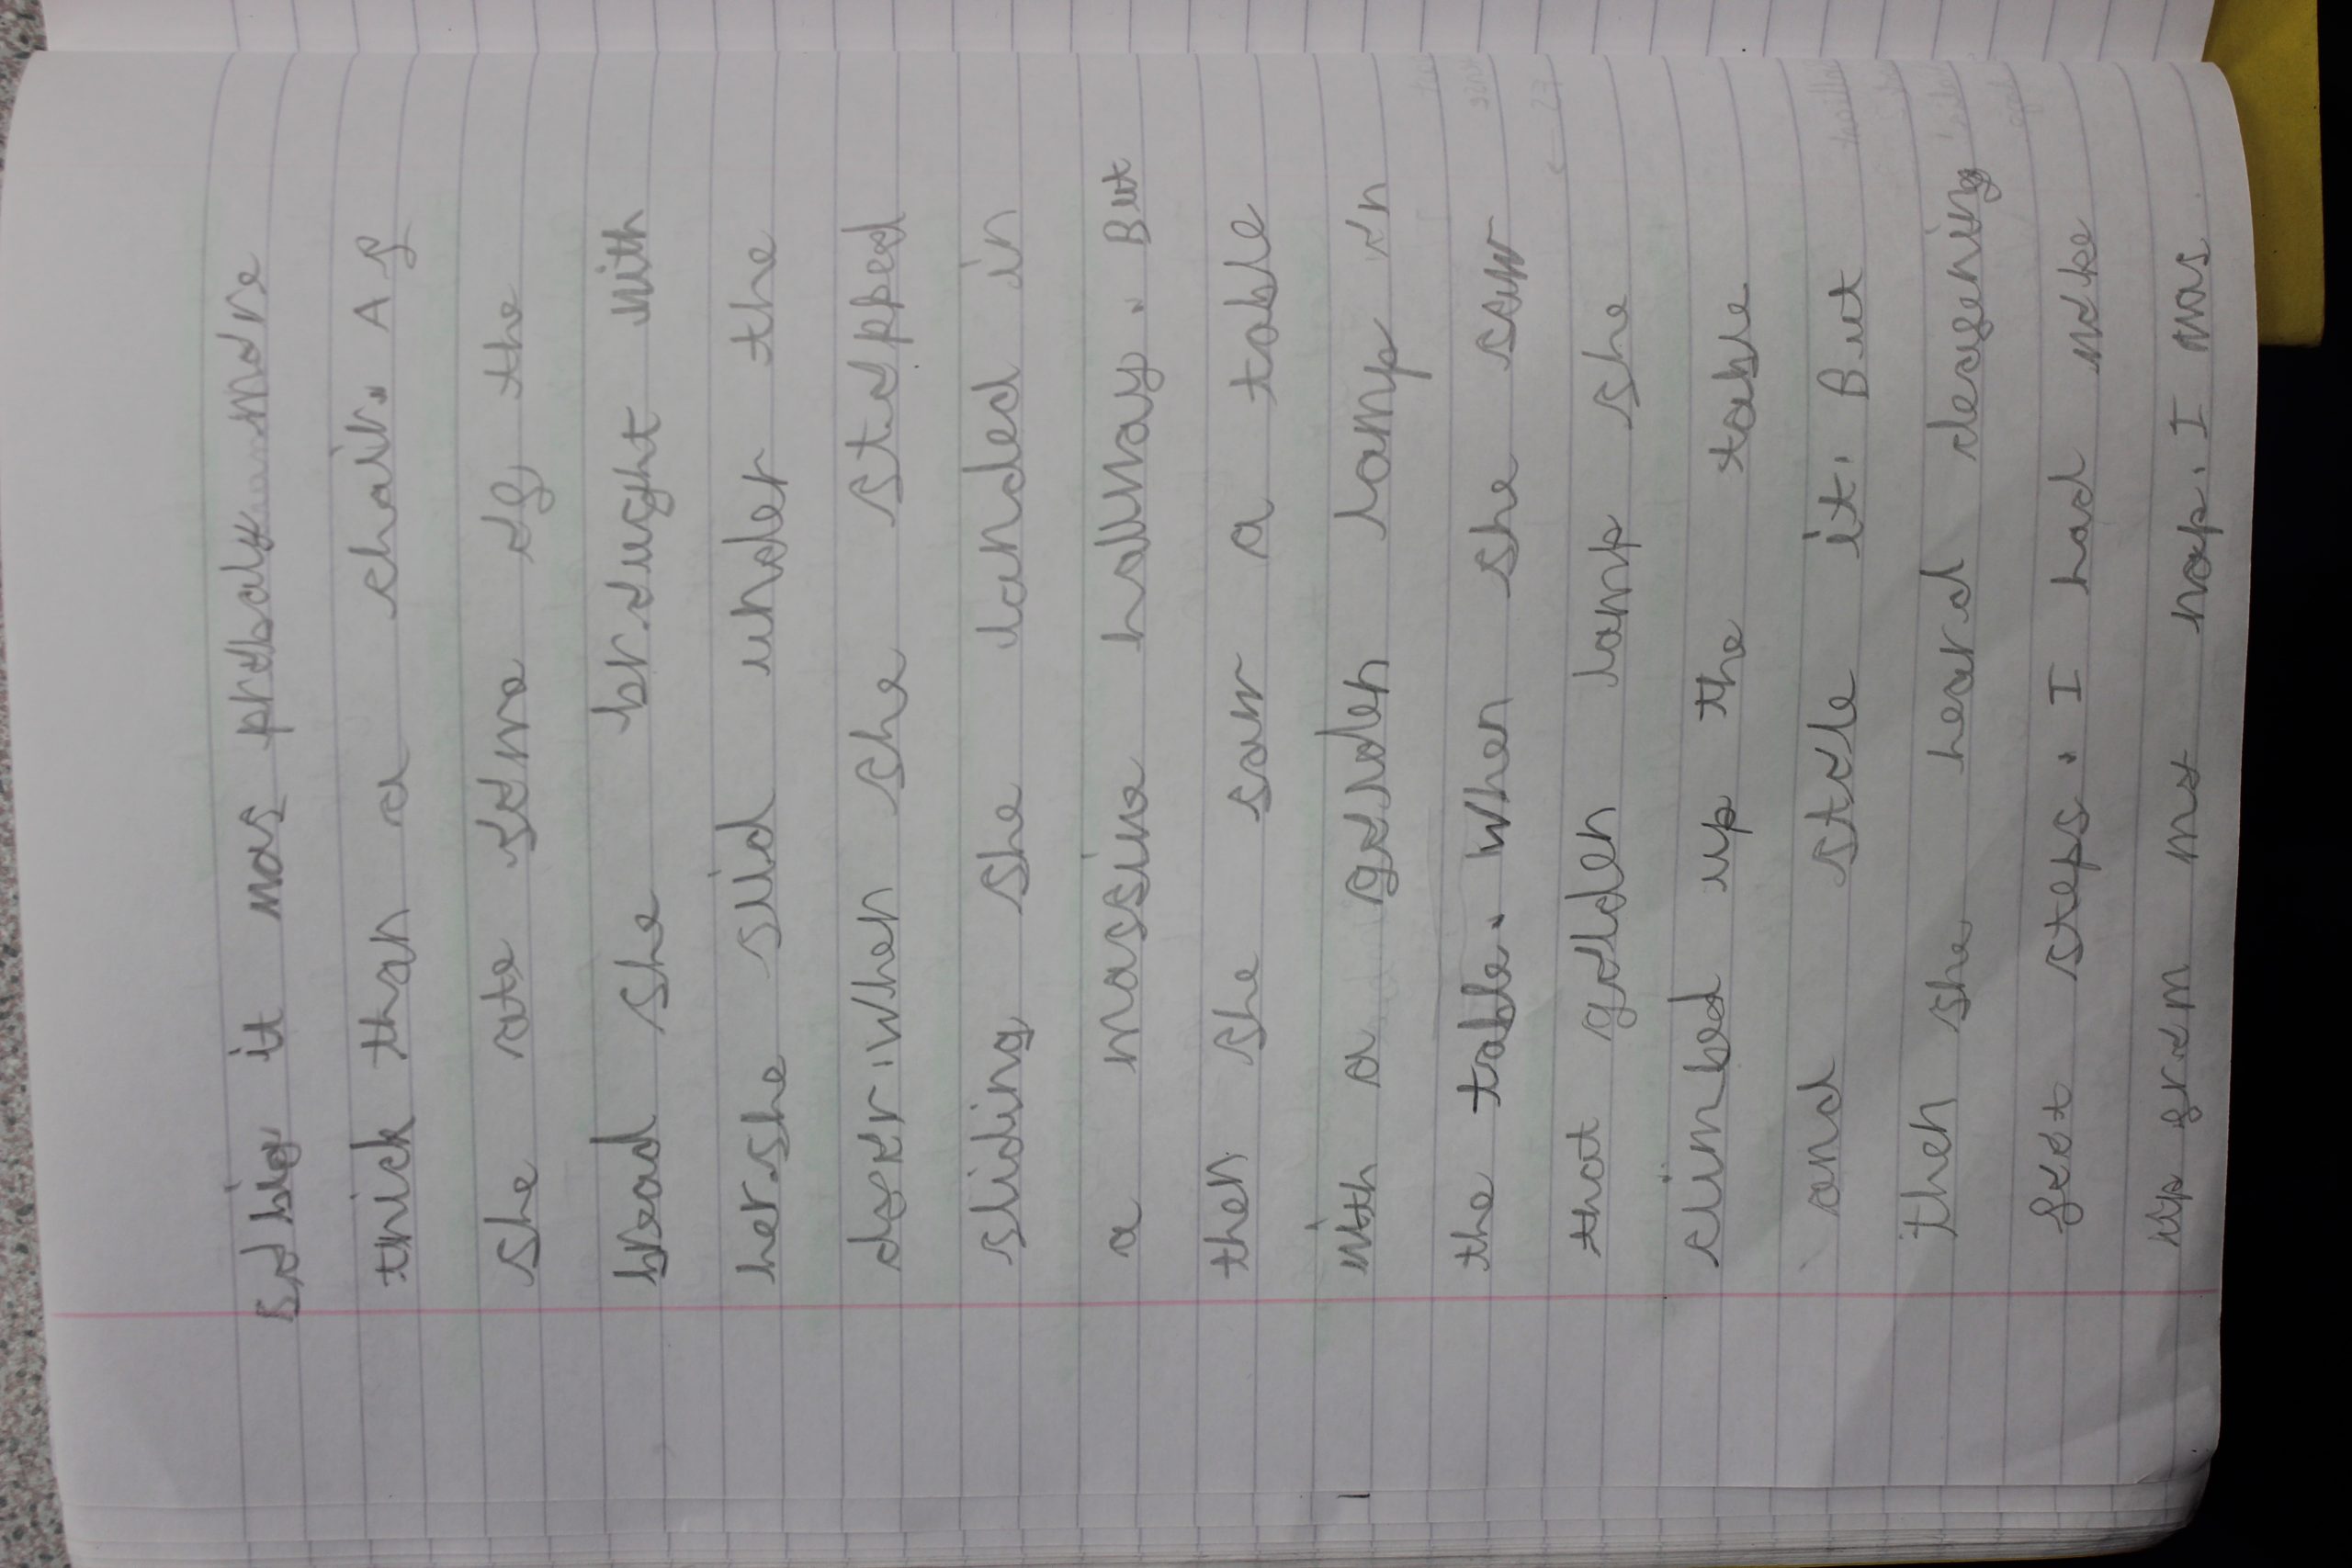 so big it was probaly more
thick than a chair. Af
she ate some of the
bread she brought with
her. she slid under the
door. When she stopped
sliding she landed in
a massive hallway. But
then she saw a table
with a golden lamp on
the table. When she saw
that golden lamp she
climbed up the table
and stole it. But
then she heard deafening
foot steps. I had woke
up from my nap. I was